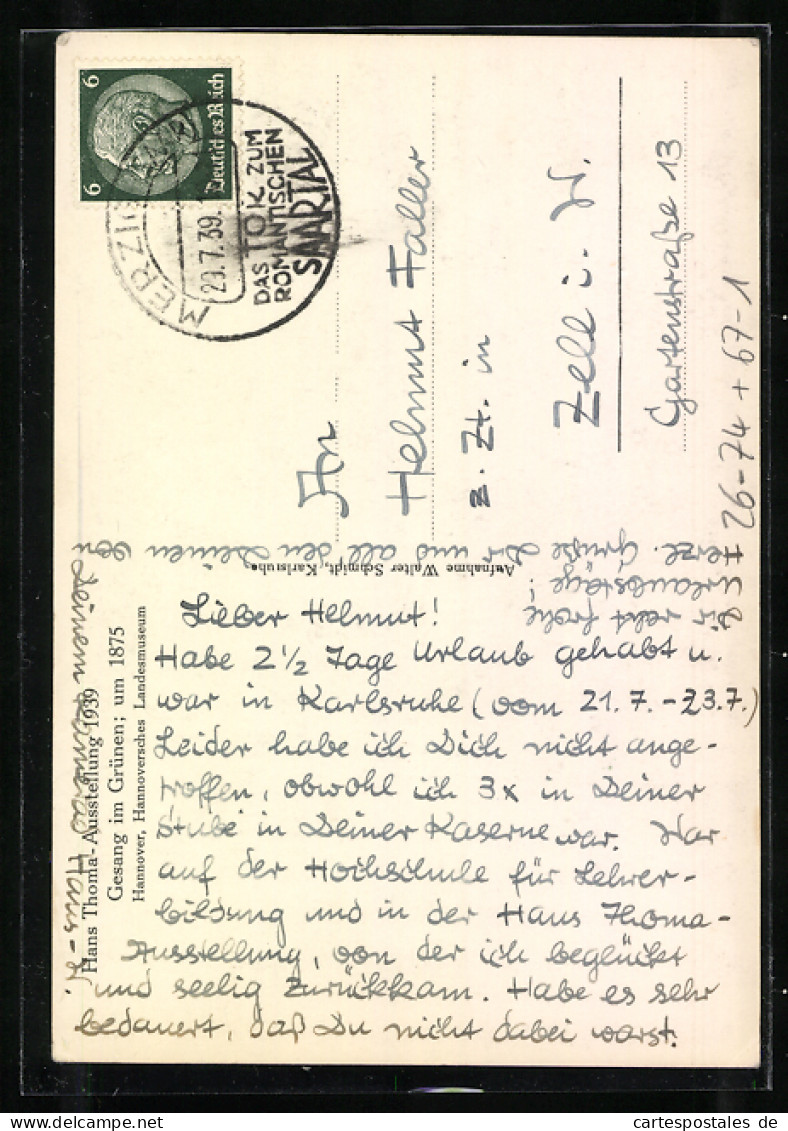 6 6
Deutsches Reich
MERZIG
29.7.39.
DAS TOR ZUM
ROMANTISCHEN
SAARTAL
An
Helmut Faller
z. Zt. in
Zell i. W.
Gartenstraße 13
26-74 + 67-1
Hans Thoma-Ausstellung 1939
Gesang im Grünen; um 1875
Hannover, Hannoversches Landesmuseum
Aufnahme Walter Schmidt, Karlsruhe
Lieber Helmut!
Habe 2½ Tage Urlaub gehabt u.
war in Karlsruhe (vom 21.7.-23.7.)
Leider habe ich Dich nicht ange-
troffen, obwohl ich 3x in Deiner
Stube in Deiner Kaserne war. War
auf der Hochschule für Lehrer-
bildung und in der Hans Thoma-
Ausstellung, von der ich beglückt
und seelig zurückkam. Habe es sehr
bedauert, daß Du nicht dabei warst.
Dir recht frohe
Urlaubstage!
Herzl. Grüße Dir und all den Deinen von
Deinem Hans-W.
cartespostales de
www.delcampe.net